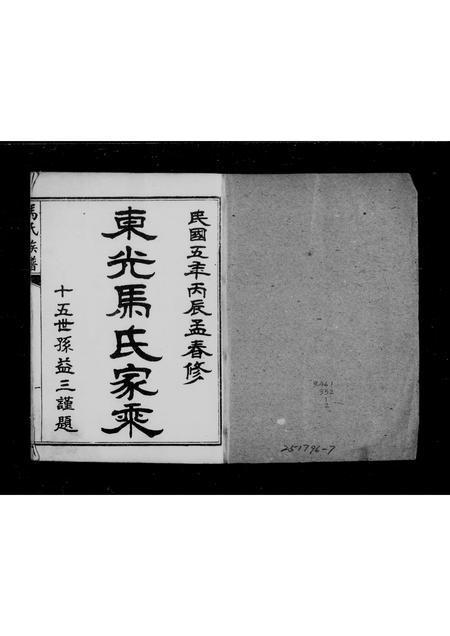 民國五年丙辰孟春修
東光馬氏家乘
十五世孫益三謹題
馬氏族譜
9461
352
1
2
251796-7